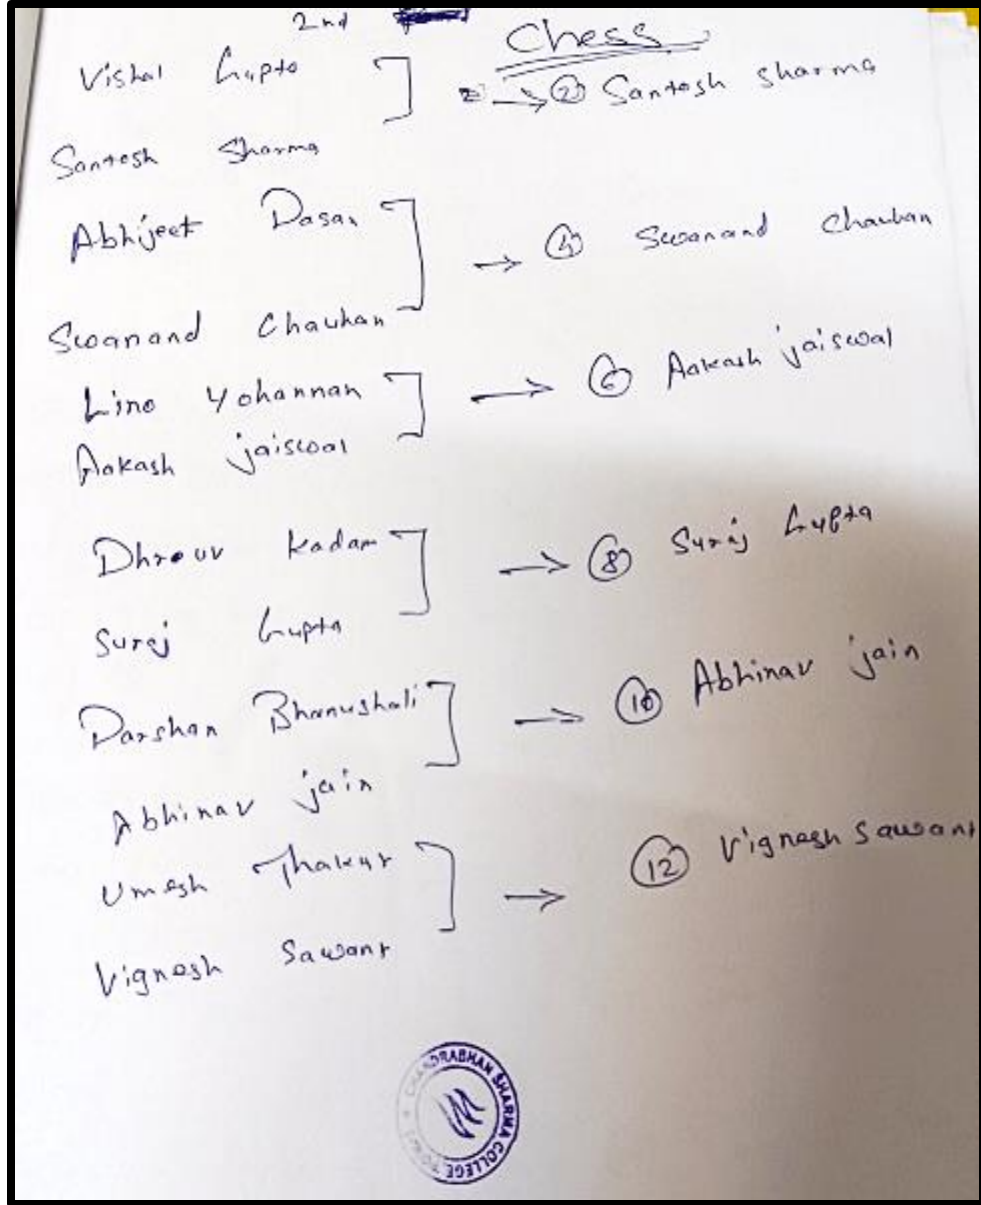 2nd
Chess
Vishal Gupta
→ ② Santosh Sharma
Santosh Sharma
Abhijeet Dasan
→ ④ Swanand Chauhan
Swanand Chauhan
Lino Yohannan
→ ⑥ Aakash jaiswal
Aakash jaiswal
Dhrouv Kadam
→ ⑧ Suraj Gupta
Suraj Gupta
Darshan Bhanushali
→ ⑩ Abhinav jain
Abhinav jain
Umesh Thakur
→ ⑫ Vignesh Sawant
Vignesh Sawant
CHANDRABHAN SHARMA COLLEGE